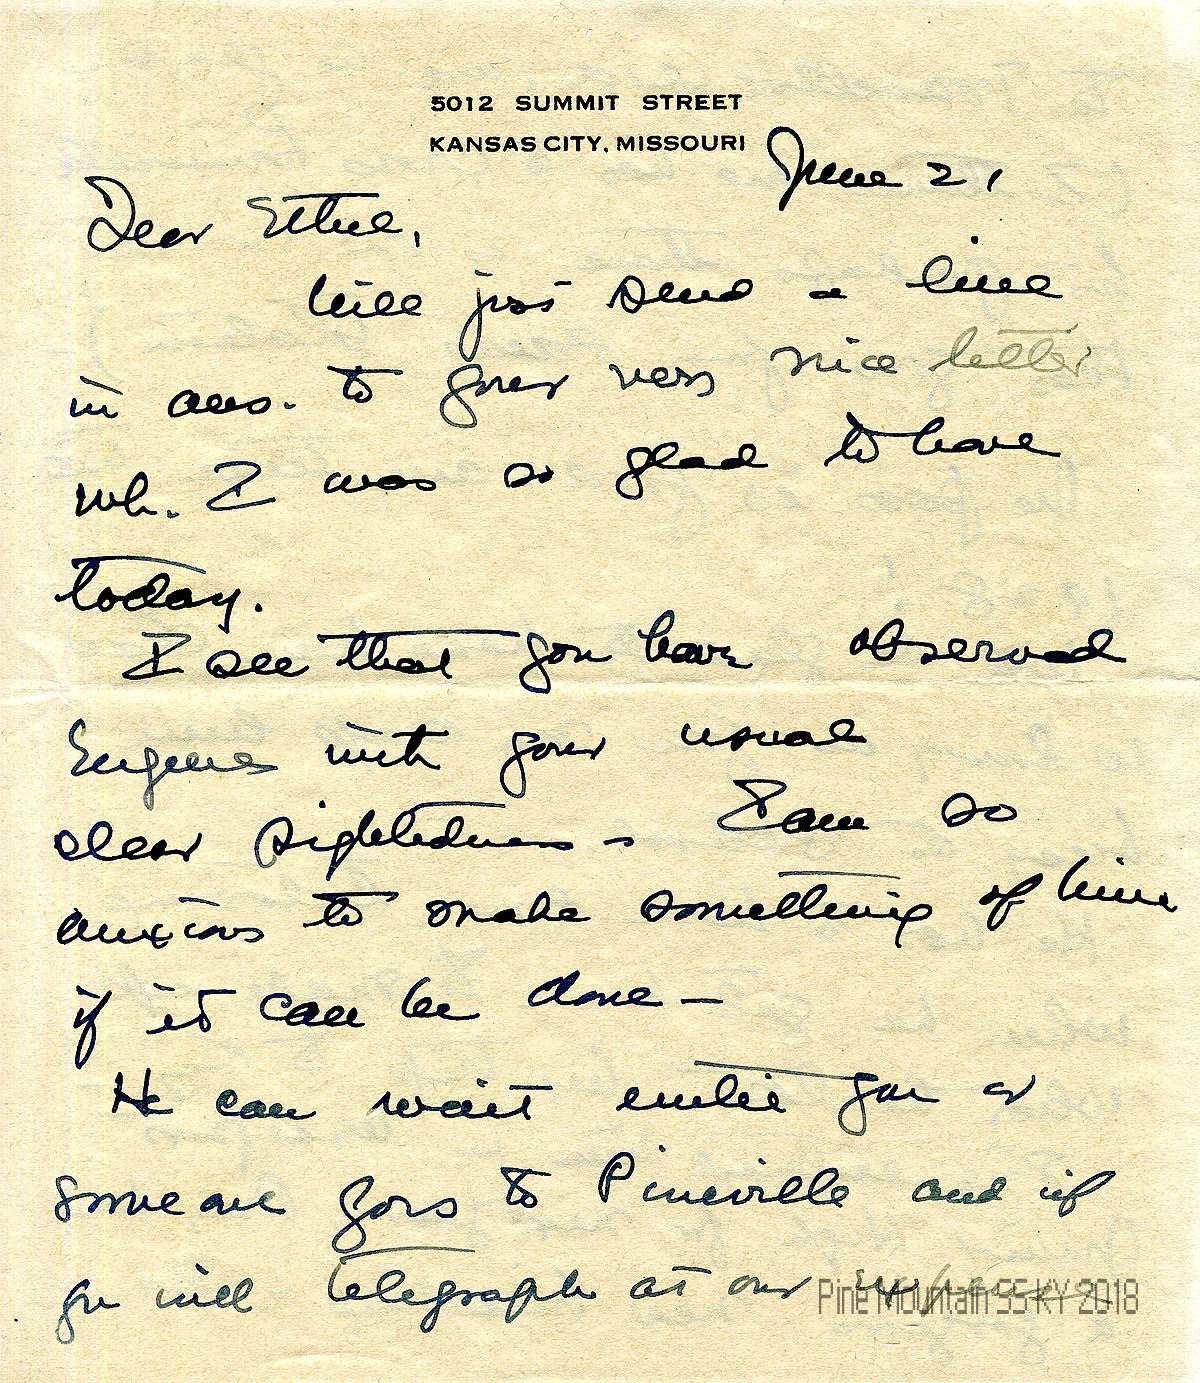 5012 SUMMIT STREET
KANSAS CITY, MISSOURI
June 21
Dear Ethel,
Will just send a line
in ans. to your very nice letter
wh. I was so glad to have
today.
I see that you have observed
Eugene with your usual
clear sightedness - I am so
anxious to make something of him
if it can be done —
He can wait until you or
someone goes to Pineville and if
you will telegraph at our expense
Pine Mountain SS KY 2018